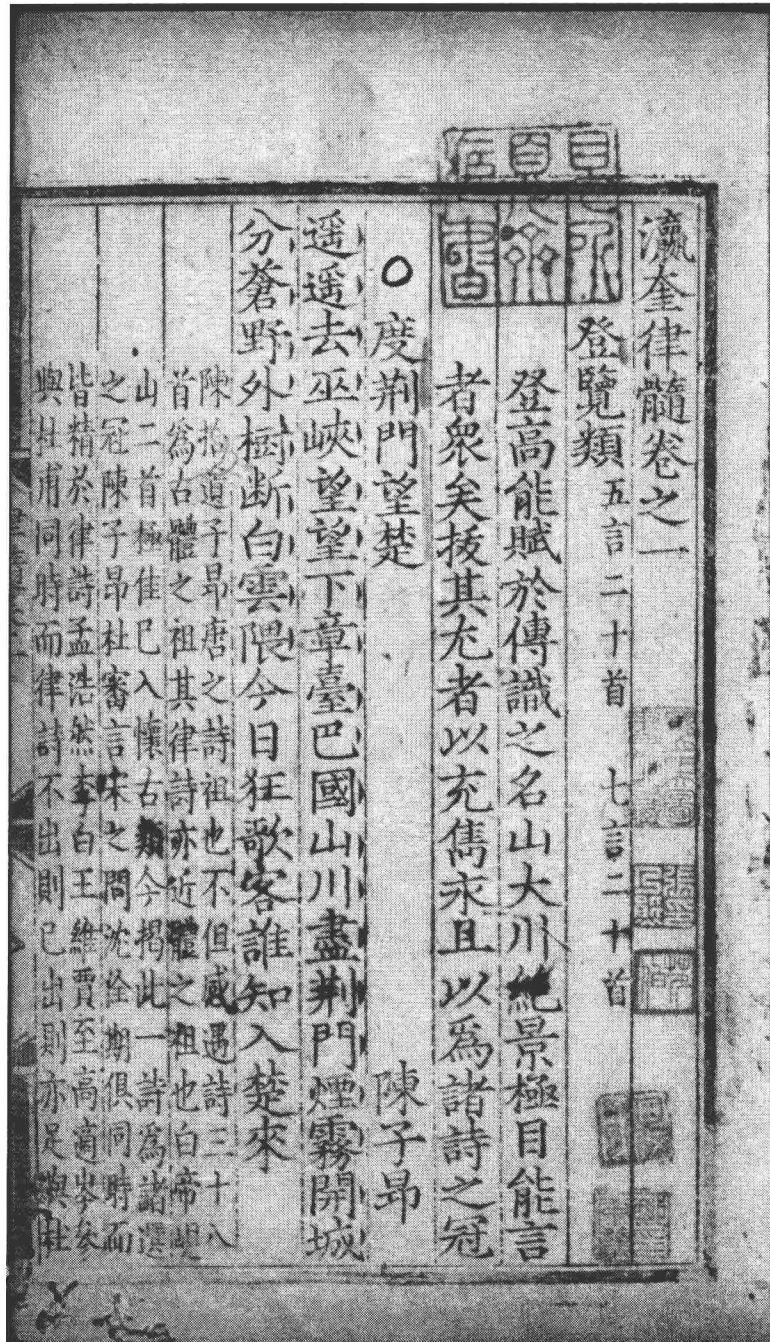 瀛奎律髓卷之一
登覽類 五言二十首 七言二十首
登高能賦於傳識之名山大川絶景極目能言
者衆矣拔其尤者以充雋永且以爲諸詩之冠
○度荆門望楚 陳子昂
遥遥去巫峽望望下章臺巴國山川盡荆門煙霧開城
分蒼野外樹斷白雲隈今日狂歌客誰知入楚來
陳拾遺子昂唐之詩祖也不但感遇詩三十八
首爲古體之祖其律詩亦近體之祖也白帝峴
山二首極佳已入懷古類今揭此一詩爲諸選
之冠陳子昂杜審言宋之問沈佺期俱同時而
皆精於律詩孟浩然李白王維賈至高適岑參
與杜甫同時而律詩不出則已出則亦足與杜